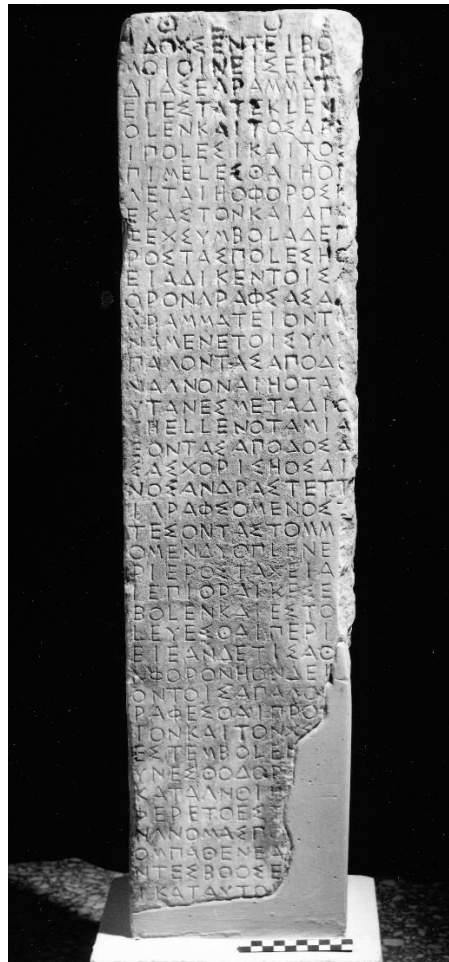 Θ Ο
ΔΟΧΣΕΝΤΕΙΒΟ
ΜΟΙΟΙΝΕΙΣΕΠΡ
ΔΙΑΣΕΓΡΑΜΜΑ
ΕΠΕΣΤΑΤΕΚΛΕΝ
ΟΛΕΝΚΑΙΤΟΣΑΡ
ΙΠΟΛΕΣΙΚΑΙΤΟ
ΠΙΜΕΛΕΣΘΑΙΗΟ
ΓΕΤΑΙΗΟΦΟΡΟΣ
ΕΚΑΣΤΟΝΚΑΙΑΠ
ΖΕΧΣΥΜΒΟΛΑΔΕΠ
ΡΟΣΤΑΣΠΟΛΕΣΗ
ΕΙΑΔΙΚΕΝΤΟΙΣ
ΟΡΟΝΓΡΑΦΣΑΣΑΔ
ΓΡΑΜΜΑΤΕΙΟΝΤ
ΝΑΜΕΝΕΤΟΙΣΥΜ
ΠΑΜΟΝΤΑΣΑΠΟΔΟ
ΝΑΓΝΟΝΑΙΗΟΤΑ
ΥΤΑΝΕΣΜΕΤΑΔΙΟ
ΗΕΛΛΕΝΟΤΑΜΙΑ
ΕΟΝΤΑΣΑΠΟΔΟΣΑ
ΣΑΣΧΟΡΙΣΗΟΣΑΙ
ΝΟΣΑΝΔΡΑΣΤΕΤΤ
ΙΓΡΑΦΣΟΜΕΝΟΣ
ΤΕΣΟΝΤΑΣΤΟΜΜ
ΟΜΕΝΔΥΟΠΛΕΝΕ
ΡΙΕΡΟΣΤΑΧΕΙΑ
ΕΠΙΘΡΑΙΚΕΣ
ΒΟΛΕΝΚΑΙΕΣΤΟ
ΛΕΥΕΣΘΑΙΠΕΡΙ
ΕΕΑΝΔΕΤΙΣΑΘ
ΦΟΡΟΝΗΟΝΔΕΙ
ΟΝΤΟΙΣΑΠΑΓΟ
ΡΑΦΕΣΘΑΙΠΡΟ
ΤΟΝΚΑΙΤΟΝΧ
ΕΣΤΕΜΒΟΛΕ
ΥΝΕΣΘΟΔΟΡ
ΚΑΤΑΓΝΟΙΕ
ΦΕΡΕΤΟΕΣ
ΝΓΝΟΜΑΣΠΟ
ΟΜΠΑΘΕΝΕΑ
ΝΤΕΣΒΟΟΣΕ
ΙΚΑΤΑΥΤΟ